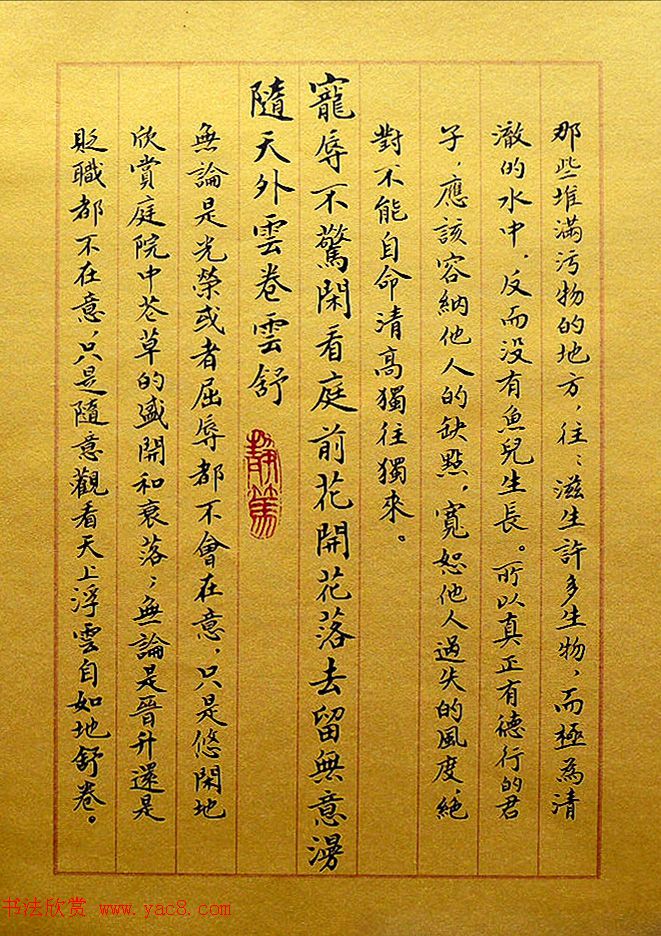 那些堆滿污物的地方，往〻滋生許多生物，而極為清
澈的水中，反而没有魚兒生長。所以真正有德行的君
子，應該容納他人的缺點，寬恕他人過失的風度，絕
對不能自命清高獨往獨來。
寵辱不驚閑看庭前花開花落去留無意漫
隨天外雲卷雲舒
無論是光榮或者屈辱都不會在意，只是悠閑地
欣賞庭院中花草的盛開和衰落；無論是晉升還是
貶職都不在意，只是隨意觀看天上浮雲自如地舒卷。
书法欣赏 www.yac8.com